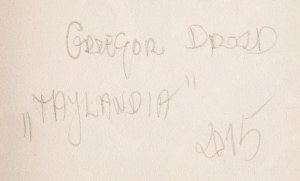 GRZEGOR DROZD
„TAYLANDIA"
2015